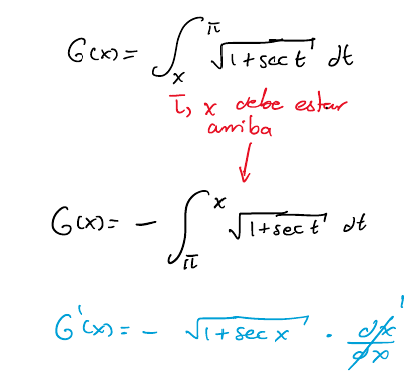 G(x) = ∫_x^π √(1+sec t) dt
π, x debe estar
arriba
G(x) = - ∫_π^x √(1+sec t) dt
G'(x) = - √(1+sec x) · dx/dx 1